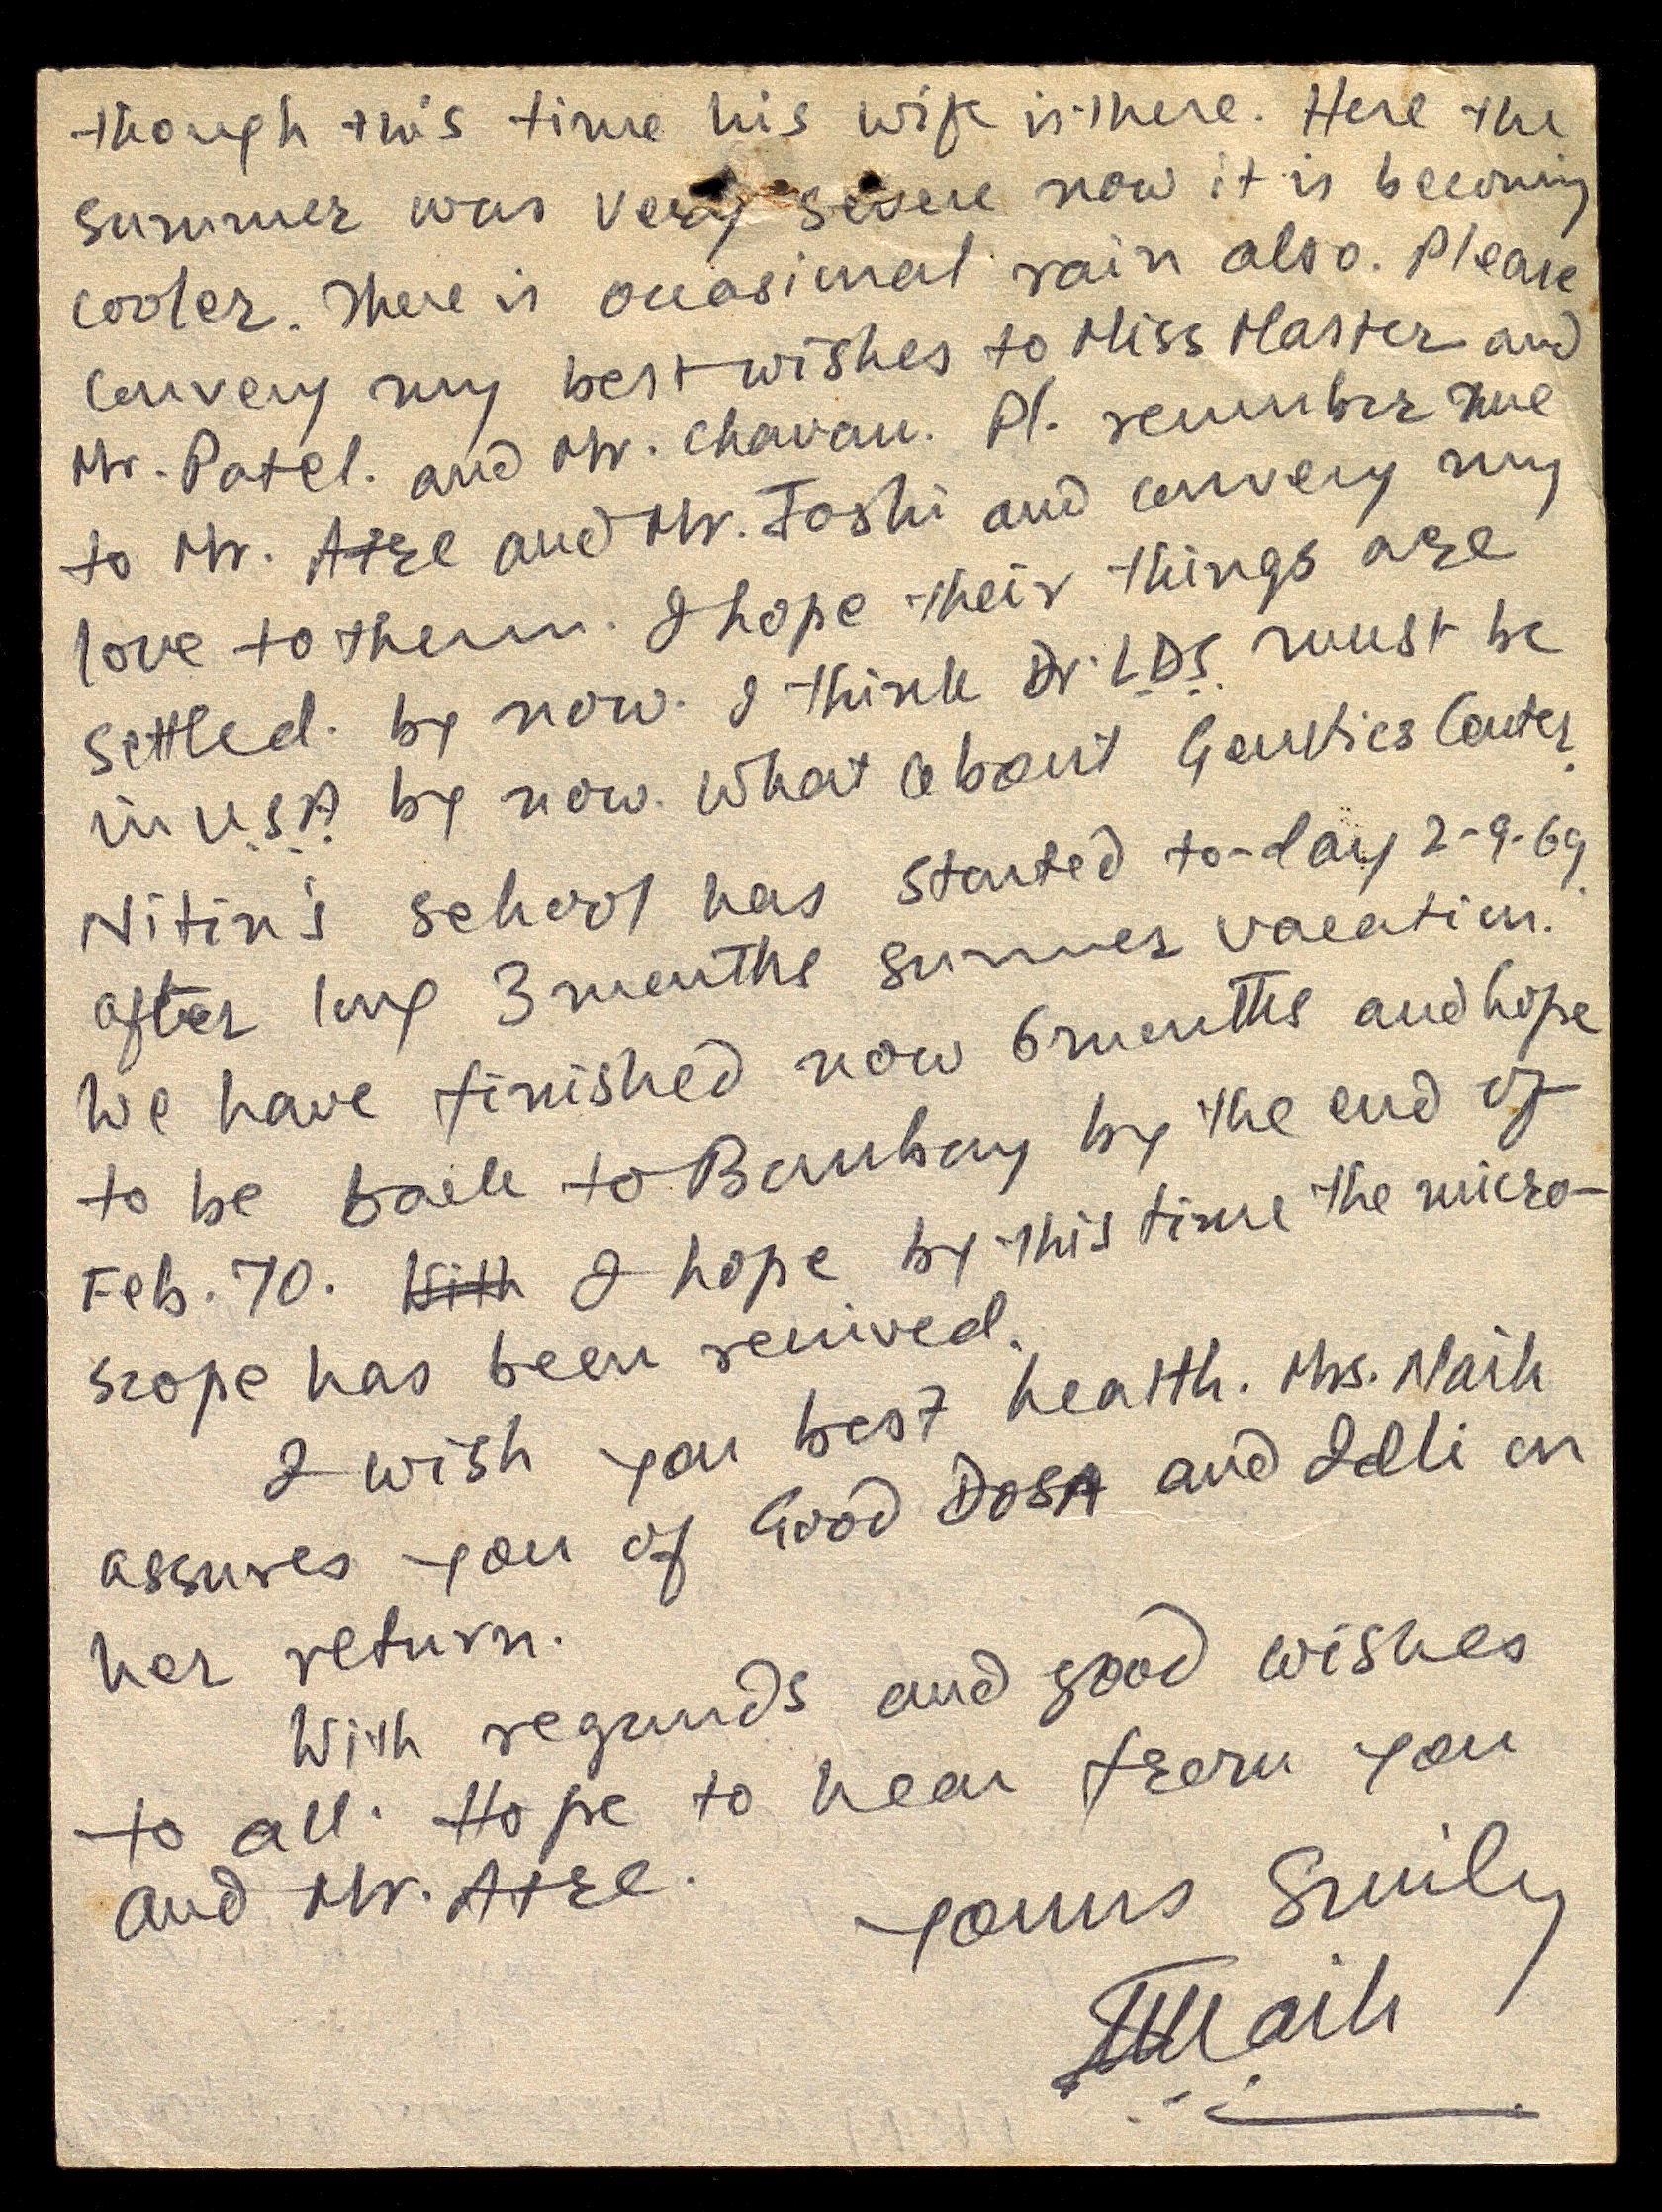 though this time his wife is there. Here the
summer was very severe now it is becoming
cooler. There is occasional rain also. Please
convey my best wishes to Miss Master and
Mr. Patel. and Mr. Chavan. Pl. remember me
to Mr. Atre and Mr. Joshi and convey my
love to them. I hope their things are
settled. by now. I think Dr. L.D.S. must be
in U.S.A. by now. What about Genetics Center.
Nitin's school has started to-day 2-9-69.
after long 3 months summer vacation.
We have finished now 6 months and hope
to be back to Bombay by the end of
Feb. 70. With I hope by this time the micro-
scope has been received.
I wish you best health. Mrs. Naik
assures you of Good DOSA and Idli on
her return.
With regards and good wishes
to all. Hope to hear from you
and Mr. Atre.
Yours Sincly
Naik